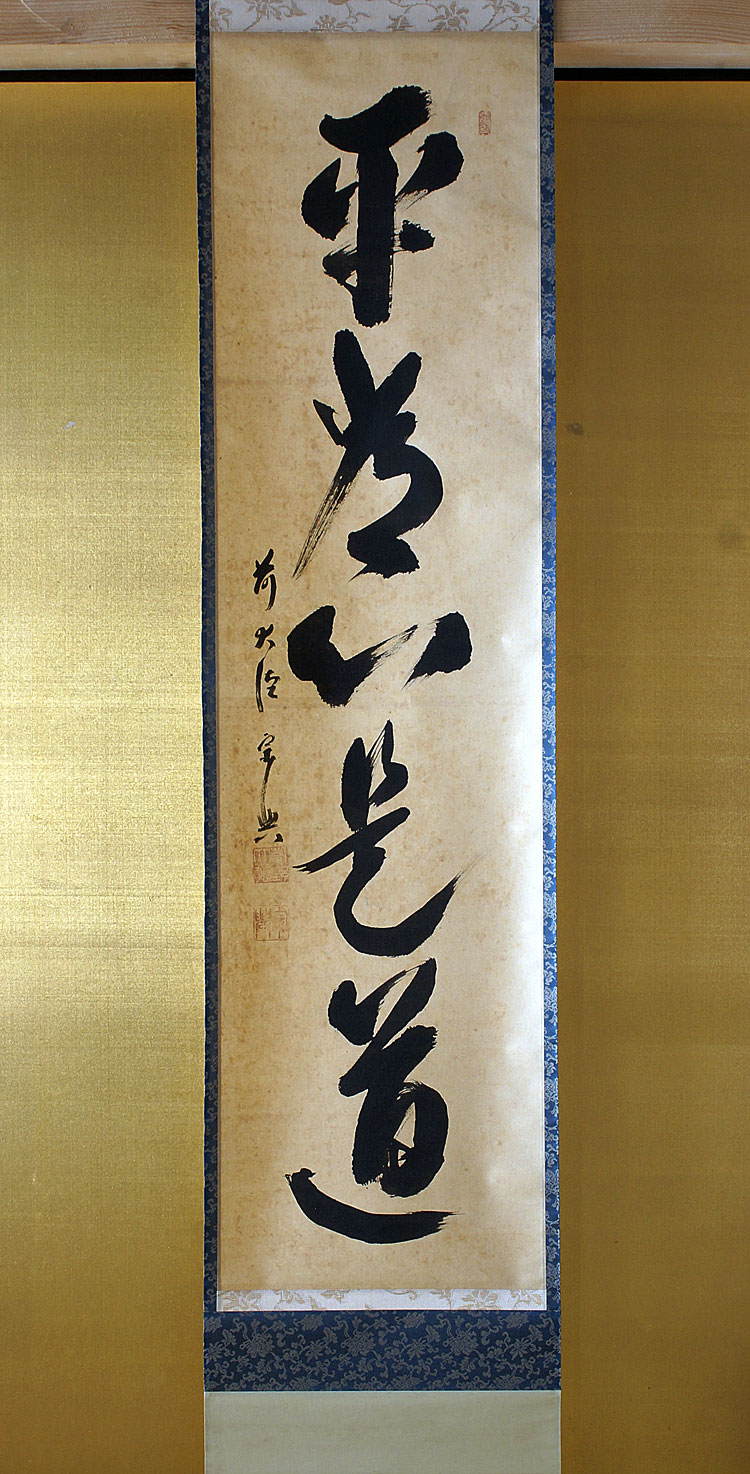 平常心是道
前大徳宗興